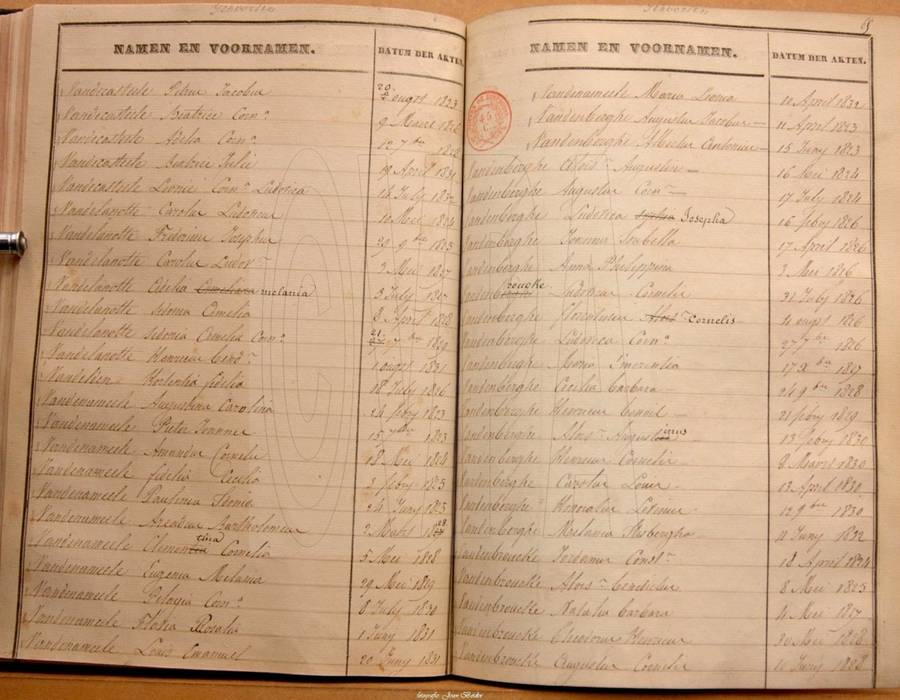 Geboorten
NAMEN EN VOORNAMEN. DATUM DER AKTEN.
Vandecasteele Petrus Jacobus 20 augst 1823
Vandecasteele Beatrice Corn.ª 9 Maart 1826
Vandecasteele Adelia Corn.ª 12 7bre 1828
Vandecasteele Beatrice Julie 19 April 1831
Vandecasteele Leonie Corn.ª Ludovica 14 July
Vandelanotte Carolus Ludovicus 10 Mei 1824
Vandelanotte Fridericus Josephus 29 9bre 1825
Vandelanotte Carolus Ludov.s 3 Mei 1827
Vandelanotte Cecilia melania 3 July 1827
Vandelanotte Sidonia Cornelia 8 April 1828
Vandelanotte Sidonia Cornelia Corn.ª 21 7bre 1829
Vandelanotte Henricus 1 augst 1831
Hortentia fidelia 18 July 1826
Vandenameele Augustina Carolina 24 febry 1823
Vandenameele Pieter Joannes 1823
Vandenameele Amandus Cornelis 18 Mei 1824
Vandenameele fidelia Cecilia 2 febry 1825
Vandenameele Paulina 24 Juny 1825
Vandenameele Arcadius Bartholomeus 2 Maart 1828
Vandenameele Clementina Cornelia 5 Mei 1828
Vandenameele Eugenia Melania 29 Mei 1829
Vandenameele Pelagia Corn.ª 8 July 1830
Vandenameele Rosalia 1 Juny 1831
Vandenameele Louis Emanuel 20 Juny 1831
Geboorten
68
NAMEN EN VOORNAMEN. DATUM DER AKTEN.
Vandenameele Maria Leonia 10 April 1832
Vandenberghe Augustus Jacobus 11 April 1823
Vandenberghe Albertus Antonius 15 Juny 1823
Vandenberghe Alois.s Augustin 16 Mei 1824
Vandenberghe Augustus Corn.s 17 July 1824
Vandenberghe Ludovica Josepha 16 febry 1826
Vandenberghe Joanna Isabella 17 April 1826
Vandenberghe Anna Philippina 3 Mei 1826
Vandenbroughe Ludovicus Cornelis 31 July 1826
Vandenberghe Florentinus Cornelis 4 augst 1826
Vandenberghe Ludovica Corn.ª 27 7bre 1826
Vandenberghe Maria Emerentia 17 Xbre 1827
Vandenberghe Cecilia barbara 24 9bre 1828
Vandenberghe Henricus 21 febry 1829
Vandenberghe Alois.s Augustinus 13 febry 1830
Vandenberghe Henricus Cornelis 8 Maart 1830
Vandenberghe Carolus Louis 13 April 1830
Vandenberghe Honoratus 12 9bre 1830
Vandenberghe Melania 11 Juny 1832
Vandenbroucke Jordanus Const.s 18 April 1824
Vandenbroucke Alois.s benedictus 8 Mei 1825
Vandenbroucke Natalia barbara 4 Mei 1827
Vandenbroucke Theodorus Henricus 30 Mei 1828
Vandenbroucke Augustus Cornelis Juny 1828
fotografie: Joan Bekdor